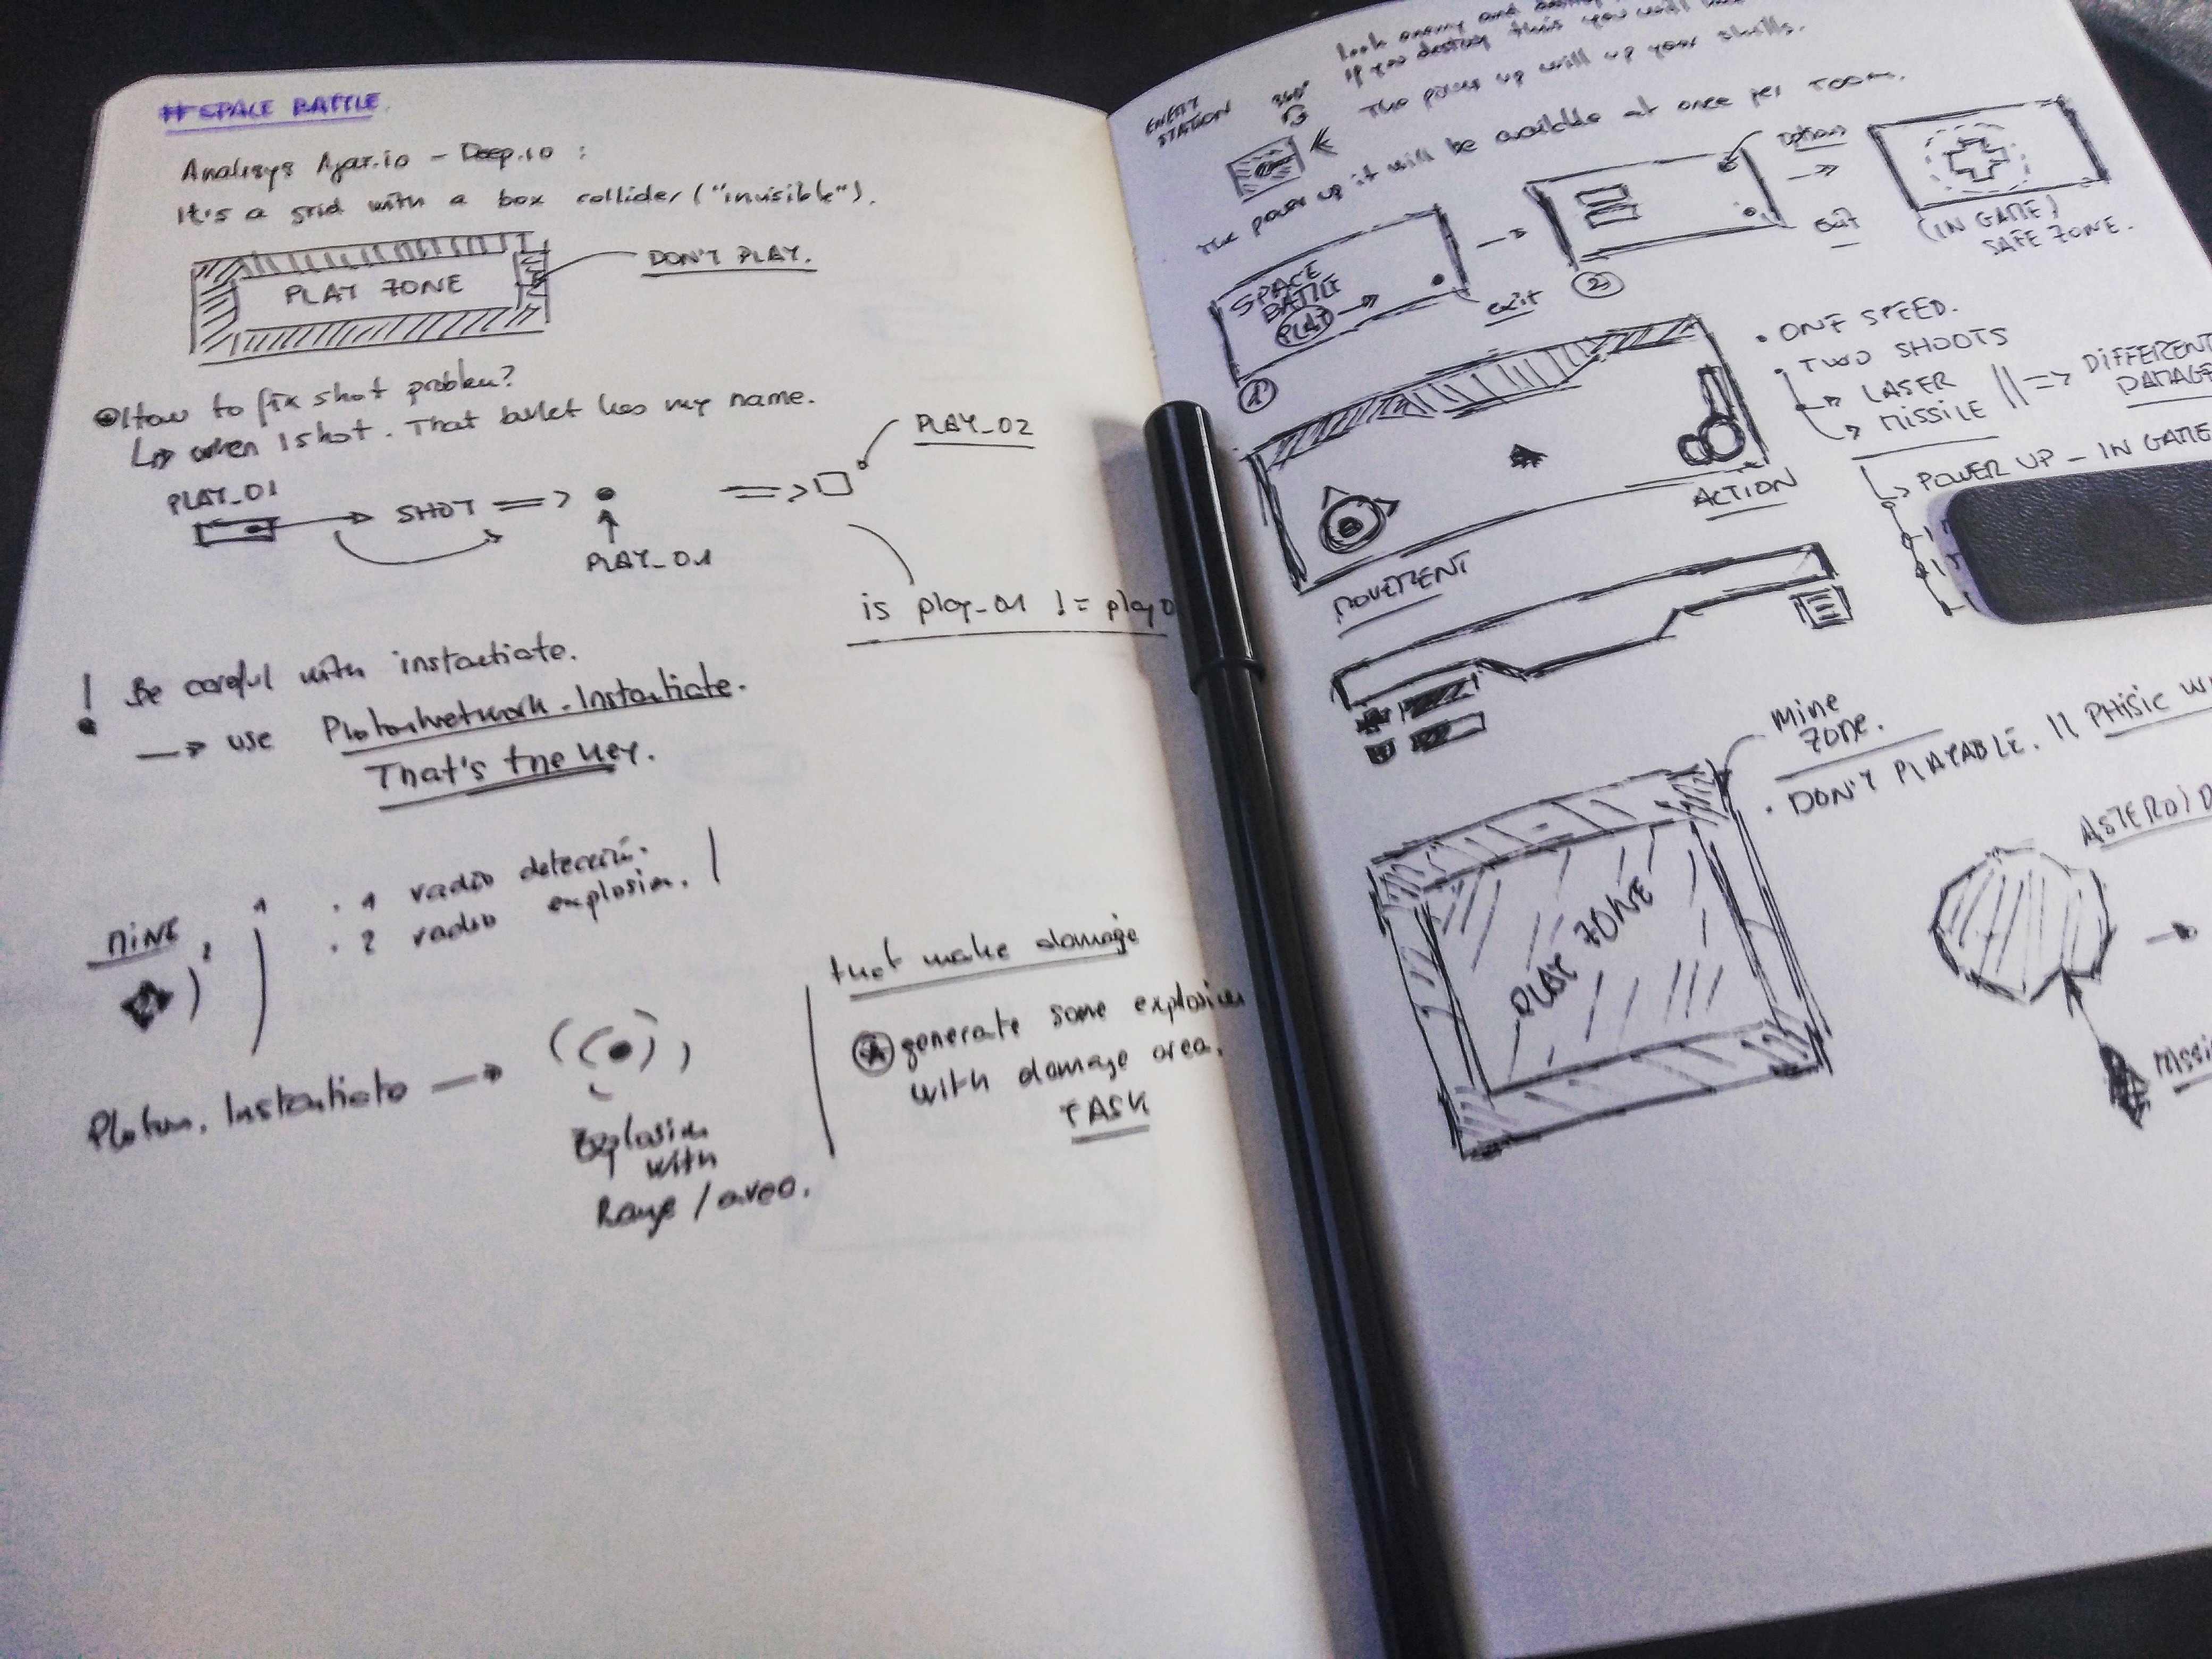 # SPACE BATTLE.
Analisys Agar.io - Deep.io :
It's a grid with a box collider ("invisible").
PLAY ZONE
DON'T PLAY.
How to fix shot problem?
when I shot. That bullet has my name.
PLAY_01
SHOT
PLAY_01
PLAY_02
is play_01 != play0
! Be careful with instantiate.
use PhotonNetwork.Instantiate.
That's the key.
MINE
1
2
. 1 radio detección.
. 2 radio explosion.
Photon. Instantiate
Explosion
with
Range / area.
that make damage
generate some explosion
with damage area.
TASK
look enemy and
If you destroy this you will
The power up will up your skills.
ENEMY
STATION
360°
The power up it will be available at once per room.
SPACE
BATTLE
PLAY
exit
1
Options
exit
2
(IN GAME)
SAFE ZONE.
ACTION
MOVEMENT
• ONE SPEED.
• TWO SHOOTS
LASER
MISSILE
|| => DIFFERENT
DAMAGE
POWER UP - IN GAME
Mine
Zone.
• DON'T PLAYABLE. || PHISIC W
PLAY ZONE
ASTEROID
MISSI